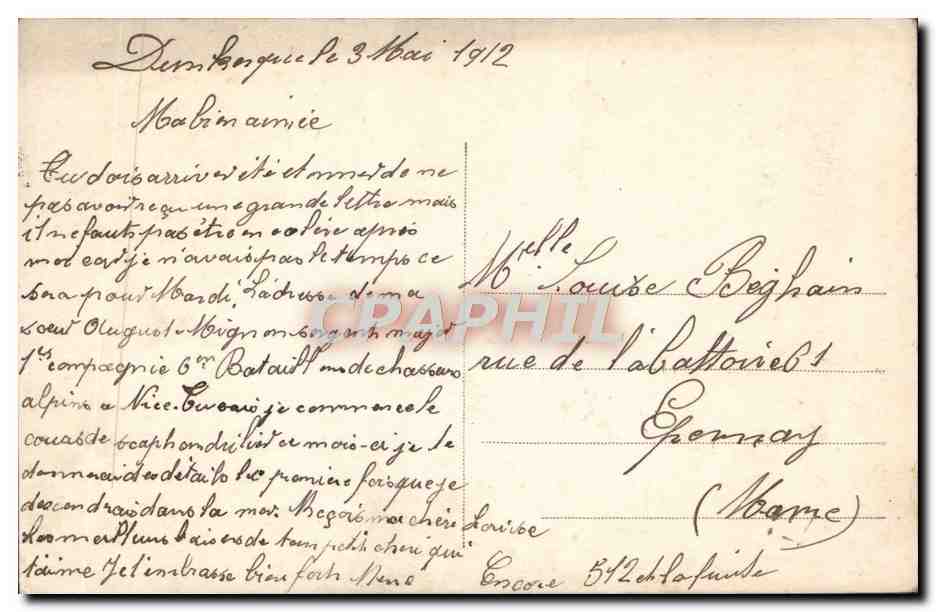 Dunkerque le 3 Mai 1912
Ma bien aimée
Tu dois arriver été etonner de ne
pas avoir reçu une grande lettre mais
il ne faut pas être en colère apres
moi car je n'avais pas le temps ce
sera pour Mardi. L'adresse de ma
soeur August Mignon sergent major
1res compagnie 6em Bataillon de chasseurs
alpins a Nice. Tu sais je commence le
cours de scaphandrilier ce mois-ci je te
donnerai des détails les premiere fois que je
descendrais dans la mer. Reçois ma chère Louise
les meilleurs baisers de ton petit cheri qui
t'aime et t'embrasse bien fort René
Encore 512 et la fuite
Melle Louise Béghain
rue de l'abattoire 61
Epernay
(Marne)
CPAPHIL